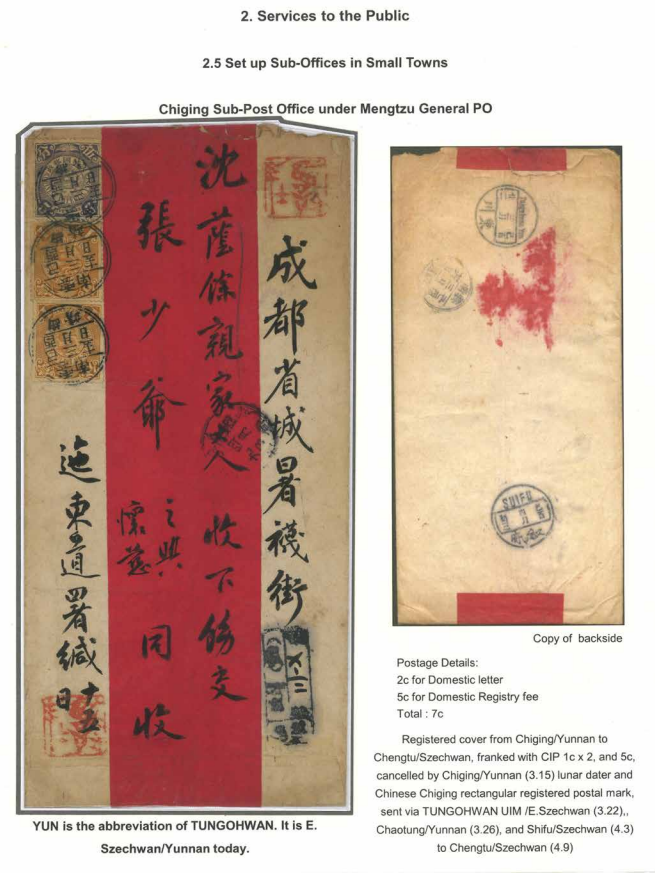 2. Services to the Public
2.5 Set up Sub-Offices in Small Towns
Chiging Sub-Post Office under Mengtzu General PO
成都省城署襪街
沈蔭餘親家大人 收下傳交
張少爺 之興 懷慈 同收
迤東道署緘 十五日
SUIFU
Copy of backside
Postage Details:
2c for Domestic letter
5c for Domestic Registry fee
Total : 7c
Registered cover from Chiging/Yunnan to
Chengtu/Szechwan, franked with CIP 1c x 2, and 5c,
cancelled by Chiging/Yunnan (3.15) lunar dater and
Chinese Chiging rectangular registered postal mark,
sent via TUNGOHWAN UIM /E.Szechwan (3.22),,
Chaotung/Yunnan (3.26), and Shifu/Szechwan (4.3)
to Chengtu/Szechwan (4.9)
YUN is the abbreviation of TUNGOHWAN. It is E.
Szechwan/Yunnan today.